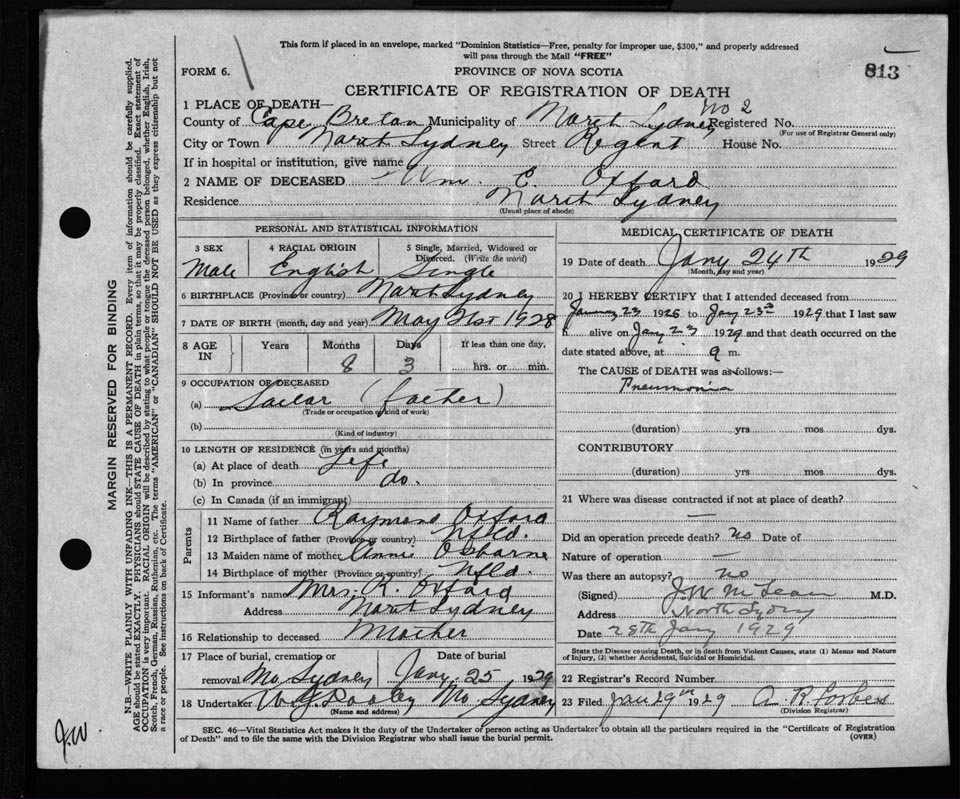 This form if placed in an envelope, marked "Dominion Statistics—Free, penalty for improper use, $300," and properly addressed
will pass through the Mail "FREE"
FORM 6.
PROVINCE OF NOVA SCOTIA
813
CERTIFICATE OF REGISTRATION OF DEATH
1 PLACE OF DEATH—
No 2
County of Cape Breton Municipality of North Sydney Registered No.
(For use of Registrar General only)
City or Town North Sydney Street Regent House No.
If in hospital or institution, give name
2 NAME OF DECEASED Wm. C. Oxford
Residence North Sydney
(Usual place of abode)
PERSONAL AND STATISTICAL INFORMATION
3 SEX 4 RACIAL ORIGIN 5 Single, Married, Widowed or
Divorced. (Write the word)
Male English Single
6 BIRTHPLACE (Province or country) North Sydney
7 DATE OF BIRTH (month, day and year) May 21st 1928
8 AGE IN Years Months Days If less than one day,
8 3 hrs. or min.
9 OCCUPATION OF DECEASED
(a) Sailor (father)
(Trade or occupation or kind of work)
(b)
(Kind of industry)
10 LENGTH OF RESIDENCE (in years and months)
(a) At place of death Life
(b) In province do.
(c) In Canada (if an immigrant)
Parents
11 Name of father Raymond Oxford
12 Birthplace of father (Province or country) Nfld.
13 Maiden name of mother Annie Osborne
14 Birthplace of mother (Province or country) Nfld.
15 Informant's name Mrs. R. Oxford
Address North Sydney
16 Relationship to deceased Mother
17 Place of burial, cremation or Date of burial
removal No. Sydney Jany. 25 1929
18 Undertaker No Sydney
(Name and address)
MEDICAL CERTIFICATE OF DEATH
19 Date of death Jany 24th 1929
(Month, day and year)
20 I HEREBY CERTIFY that I attended deceased from
January 23 1926 to Jany 23rd 1929 that I last saw
h alive on Jany 23 1929 and that death occurred on the
date stated above, at 9 m.
The CAUSE of DEATH was as follows:—
Pneumonia
(duration) yrs mos dys.
CONTRIBUTORY
(duration) yrs mos dys.
21 Where was disease contracted if not at place of death?
—
Did an operation precede death? no Date of
Nature of operation —
Was there an autopsy? no
(Signed) J W McLean M.D.
Address North Sydney
Date 28th Jany 1929
State the Disease causing Death, or in death from Violent Causes, state (1) Means and Nature
of Injury, (2) whether Accidental, Suicidal or Homicidal.
22 Registrar's Record Number
23 Filed Jan 29th 1929 A. R. Forbes
(Division Registrar)
SEC. 46—Vital Statistics Act makes it the duty of the Undertaker or person acting as Undertaker to obtain all the particulars required in the "Certificate of Registration
of Death" and to file the same with the Division Registrar who shall issue the burial permit. (OVER)
MARGIN RESERVED FOR BINDING
N.B.—WRITE PLAINLY WITH UNFADING INK—THIS IS A PERMANENT RECORD. Every item of information should be carefully supplied.
AGE should be stated EXACTLY. PHYSICIANS should STATE CAUSE OF DEATH in plain terms, so that it may be properly classified. Exact statement of
OCCUPATION is very important. RACIAL ORIGIN will be described by stating to what people or tongue the deceased person belonged, whether English, Irish,
Scotch, French, German, Russian, Ruthenian, etc. The terms "AMERICAN" or "CANADIAN" SHOULD NOT BE USED as they express citizenship but not
a race or people. See instructions on back of Certificate.
J.W